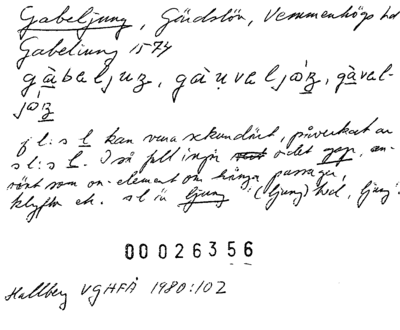 Gabeljung, Gärdslöv, Vemmenhögs hd
Gabeliung 1574
gàbaljuŋ, gàu̯valjòŋ, gàval-
jòŋ
f l:s l kan vara sekundärt, påverkat av
s l:s l. I så fall ingår ordet gap, an-
vänt som on-element om trånga passager,
klyftor etc. sl är ljung '(ljung)hed, ljung'.
00026356
Hallberg VGHFÅ 1980:102